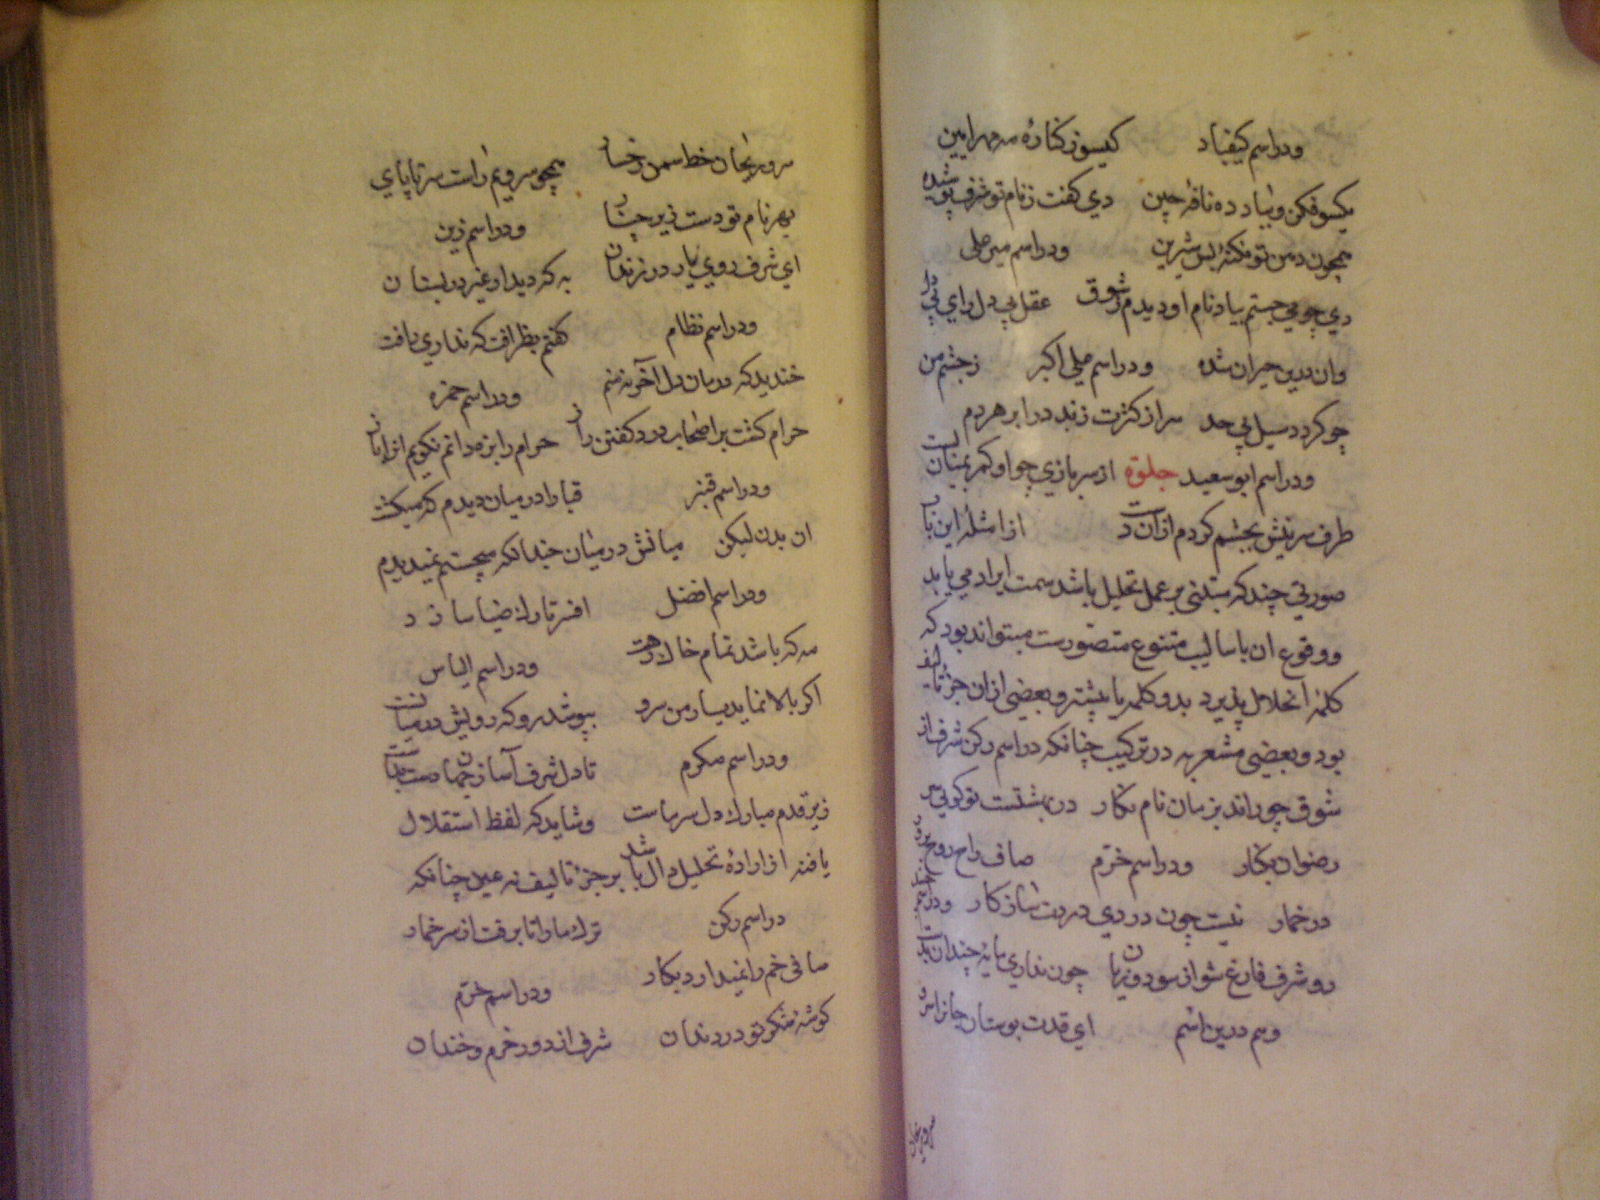 ودر اسم کیقباد کیسو ز کناره مه مهرآیین
یکسو فکن و بباد ده نافه چین دی کفت ز نام تو شرف پوشیده
همچون دهن تو نکته بس شیرین ودر اسم میر علی
دی چو می جستم بیاد نام او دیدم ز شوق عقل بی دل رای بی دل
وان درین حیران شده ودر اسم علی اکبر ز چشم من
چو کردد سیل بی حد سر از کثرت زند در ابر هر دم
ودر اسم ابو سعید جلوة از سر بازی چو او کمر بمیان بست
طرف سر تیغش بچشم کردم از ان دست از امثله این باب
صورتی چند که مبتنی بر عمل تحلیل باشد سمت ایراد می یابد
ووقوع ان باسالیب متنوع متصورست میتواند بود که
کلمه انحلال پذیرد بدو کلمه یا بیشتر و بعضی از ان جزء تالیف
بود و بعضی مشعر به در ترکیب چنانکه در اسم رکن شرف از
شوق چو راند بزبان نام نکار در بهشتست تو کویی سر
رضوان بکار ودر اسم خرم صاف راح روح پرور
در خمار نیست چون دردی دردت ساز کار ودر اسم
رو شرف فارغ شو از سود و زیان چون نداری مایه چندان
وهم درین اسم ای قدت بوستان جانرا سرو
سرو ریحان خط سمن رخسار همچو سرویم راست سر تا پای
بهر نام تو دست زیر چنار ودر اسم زین
ای شرف روی یار در زندان به که دیدار غیر در بستان
ودر اسم نظام کفتم بظرافت که نداری یافت
خندید که درمان دل آخر نه منم ودر اسم حمزه
حرام کشت بر اصحاب درد کفتن راز حرام را بزه دانم نکویم از اباز
ودر اسم قنبر قبا را در میان دیدم که میکشت
ان بدن لیکن میانش در میان چندانکه میجستم نمیدیدم
ودر اسم افضل افسر تارك ضیا سازد
مه که باشد تمام خاك رهت ودر اسم الیاس
اکر بالا نماید یار من سرو بپوشد رو که رویش در میانست
ودر اسم مکرم تا دل شرف آسا ز جهان دست بداشت
زیر قدم مبارك دل سرهاست وشاید که لفظ استقلال
یافته از اراده تحلیل دال باشد بر جزء تالیف نه عین چنانکه
در اسم رکن ترك ما را تا برفت از سر خمار
صافی خم را نمیدارد بکار ودر اسم خرم
کوشه منکر تو در دندان شرف از دور خرم و خندان